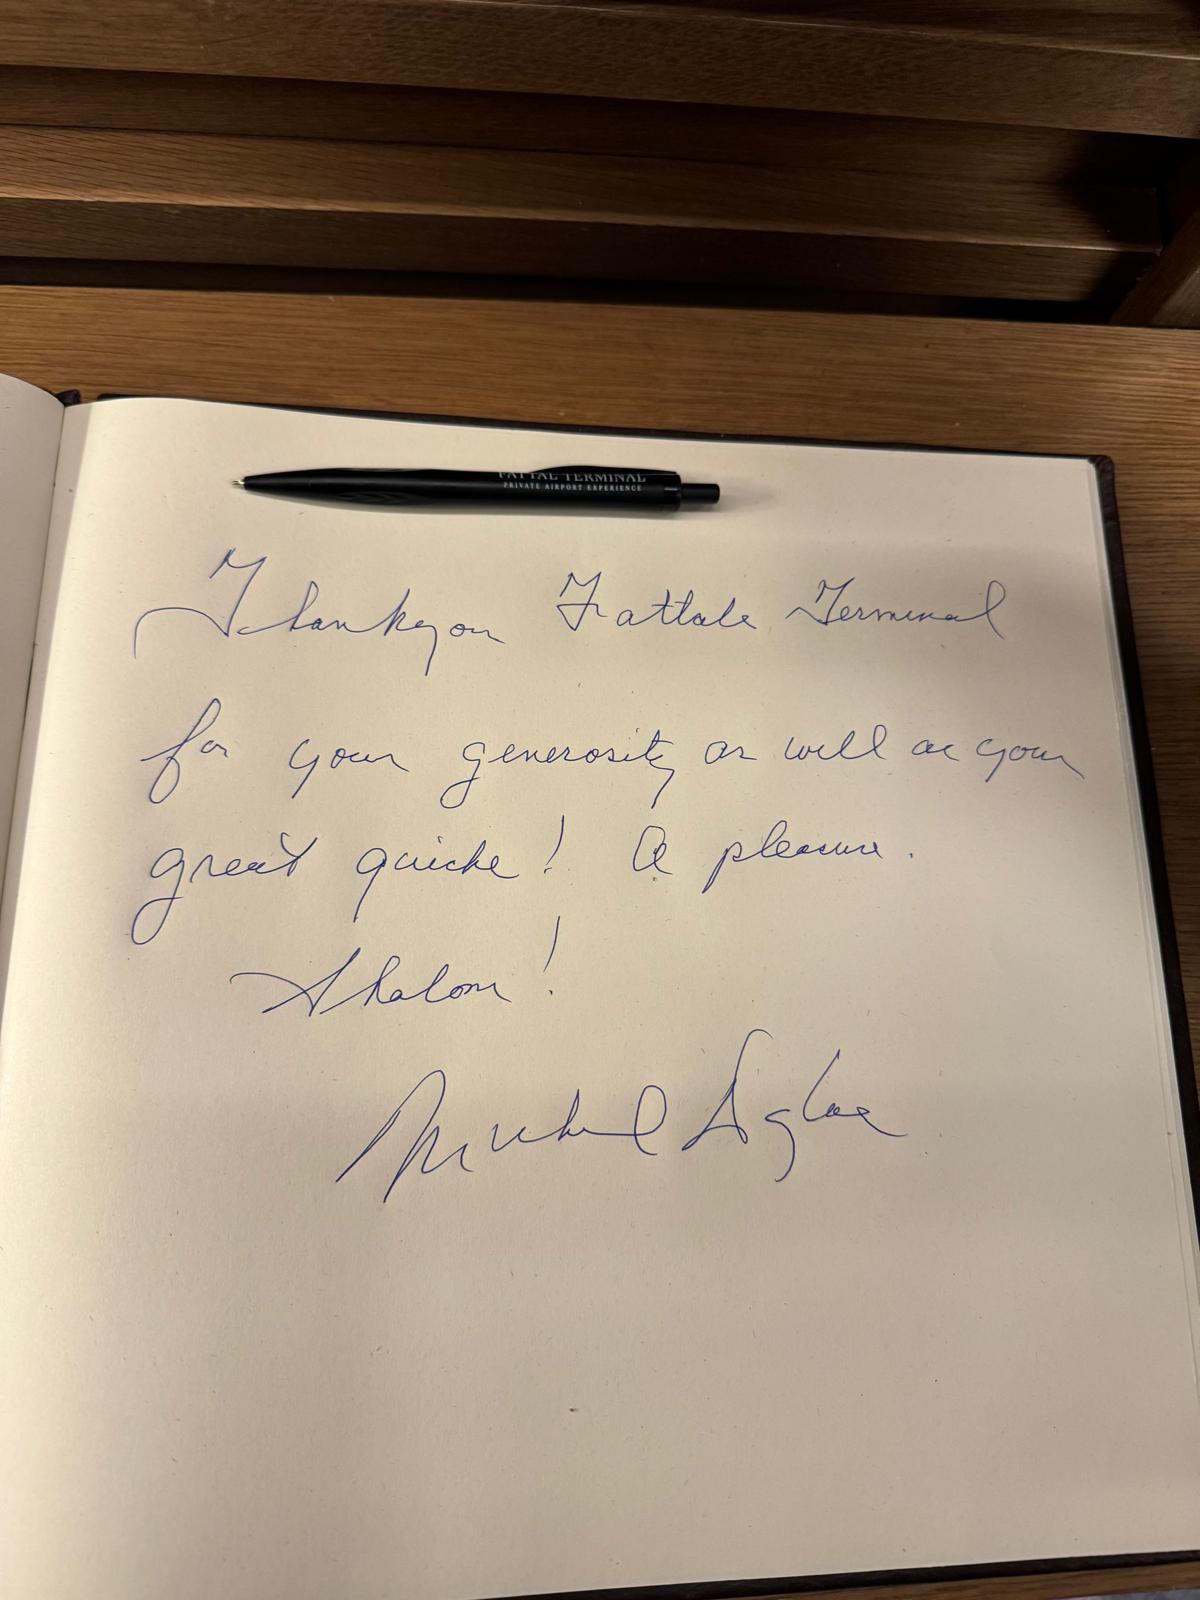 FATTAL TERMINAL
PRIVATE AIRPORT EXPERIENCE
Thank you Fattale Terminal
for your generosity as well as your
great quiche! A pleasure.
Shalom!
Michael